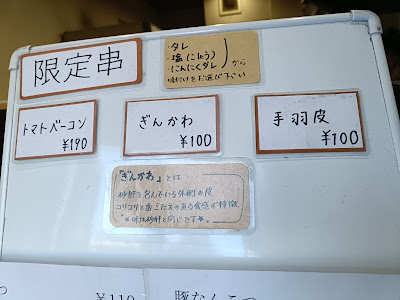 限定串
・タレ
・塩(こしょう)
・にんにくダレ
から
味付けをお選び下さい
トマトベーコン
¥190
ぎんかわ
¥100
手羽皮
¥100
「ぎんかわ」とは…
砂肝を包んでいる外側の皮
コリコリと歯ごたえのある食感が特徴
※味は砂肝と同じです。
¥110
豚なんこつ